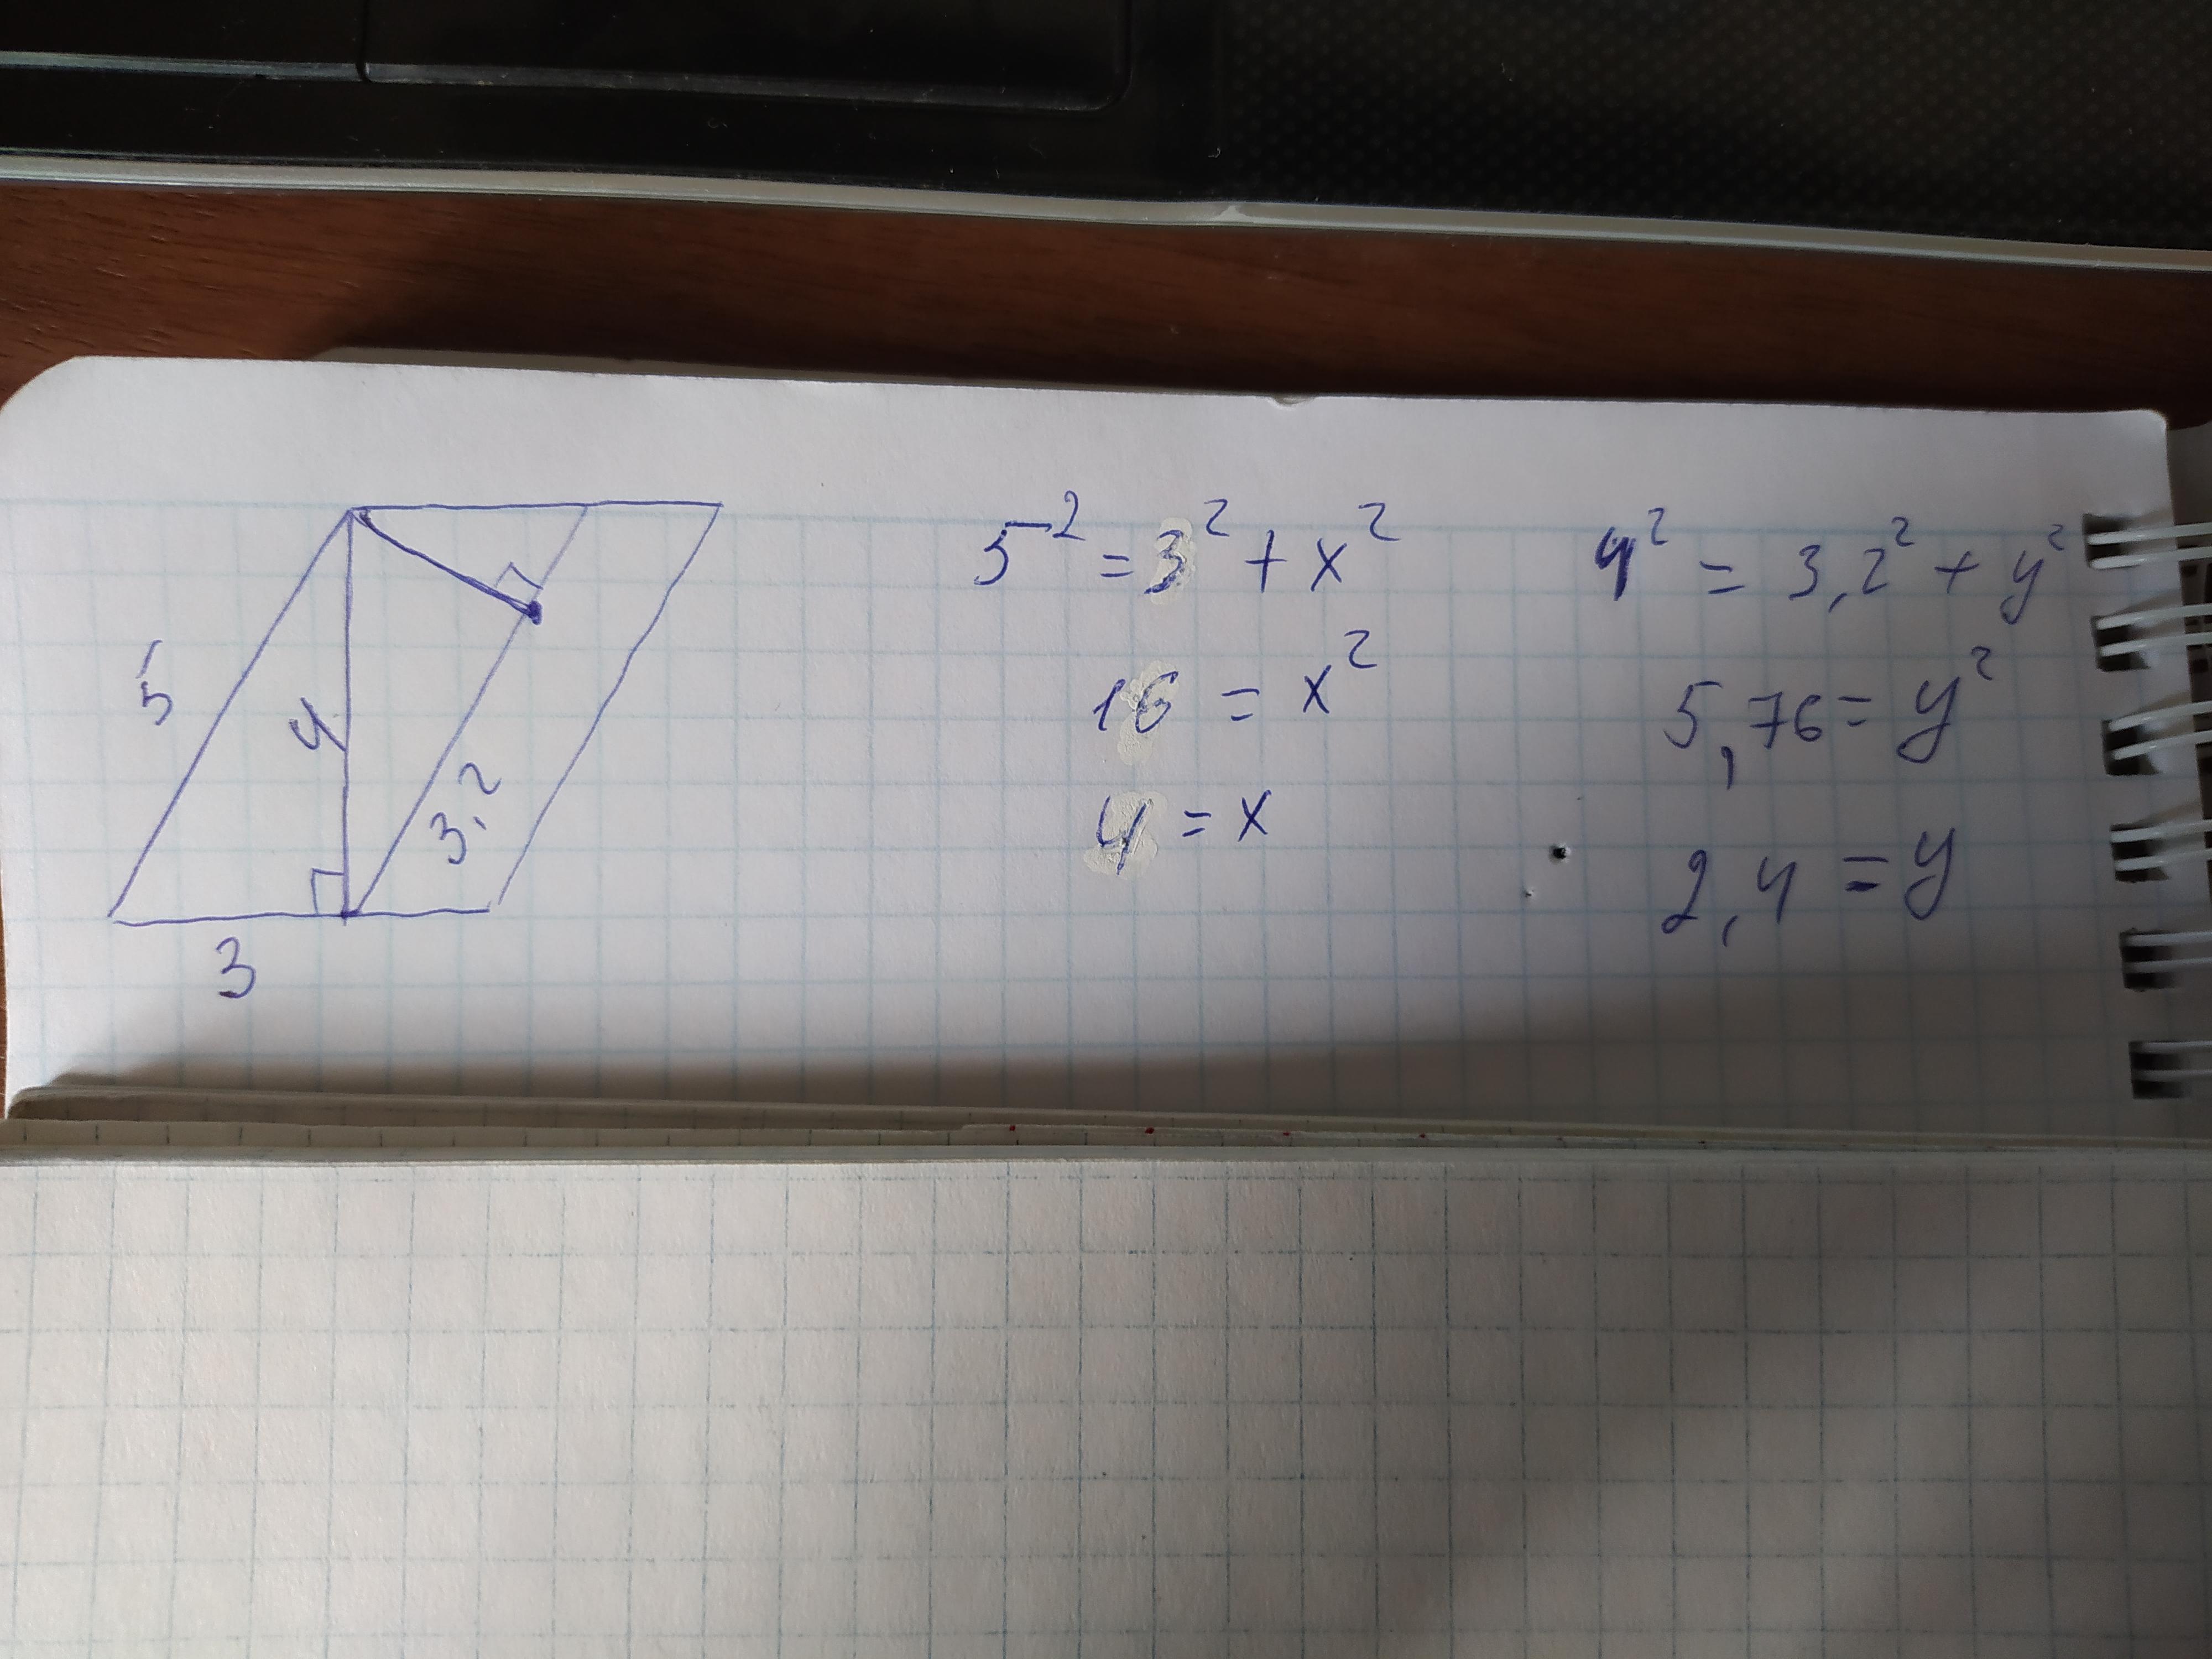 5
4
3,2
3
5² = 3² + x²
16 = x²
4 = x
4² = 3,2² + y²
5,76 = y²
2,4 = y